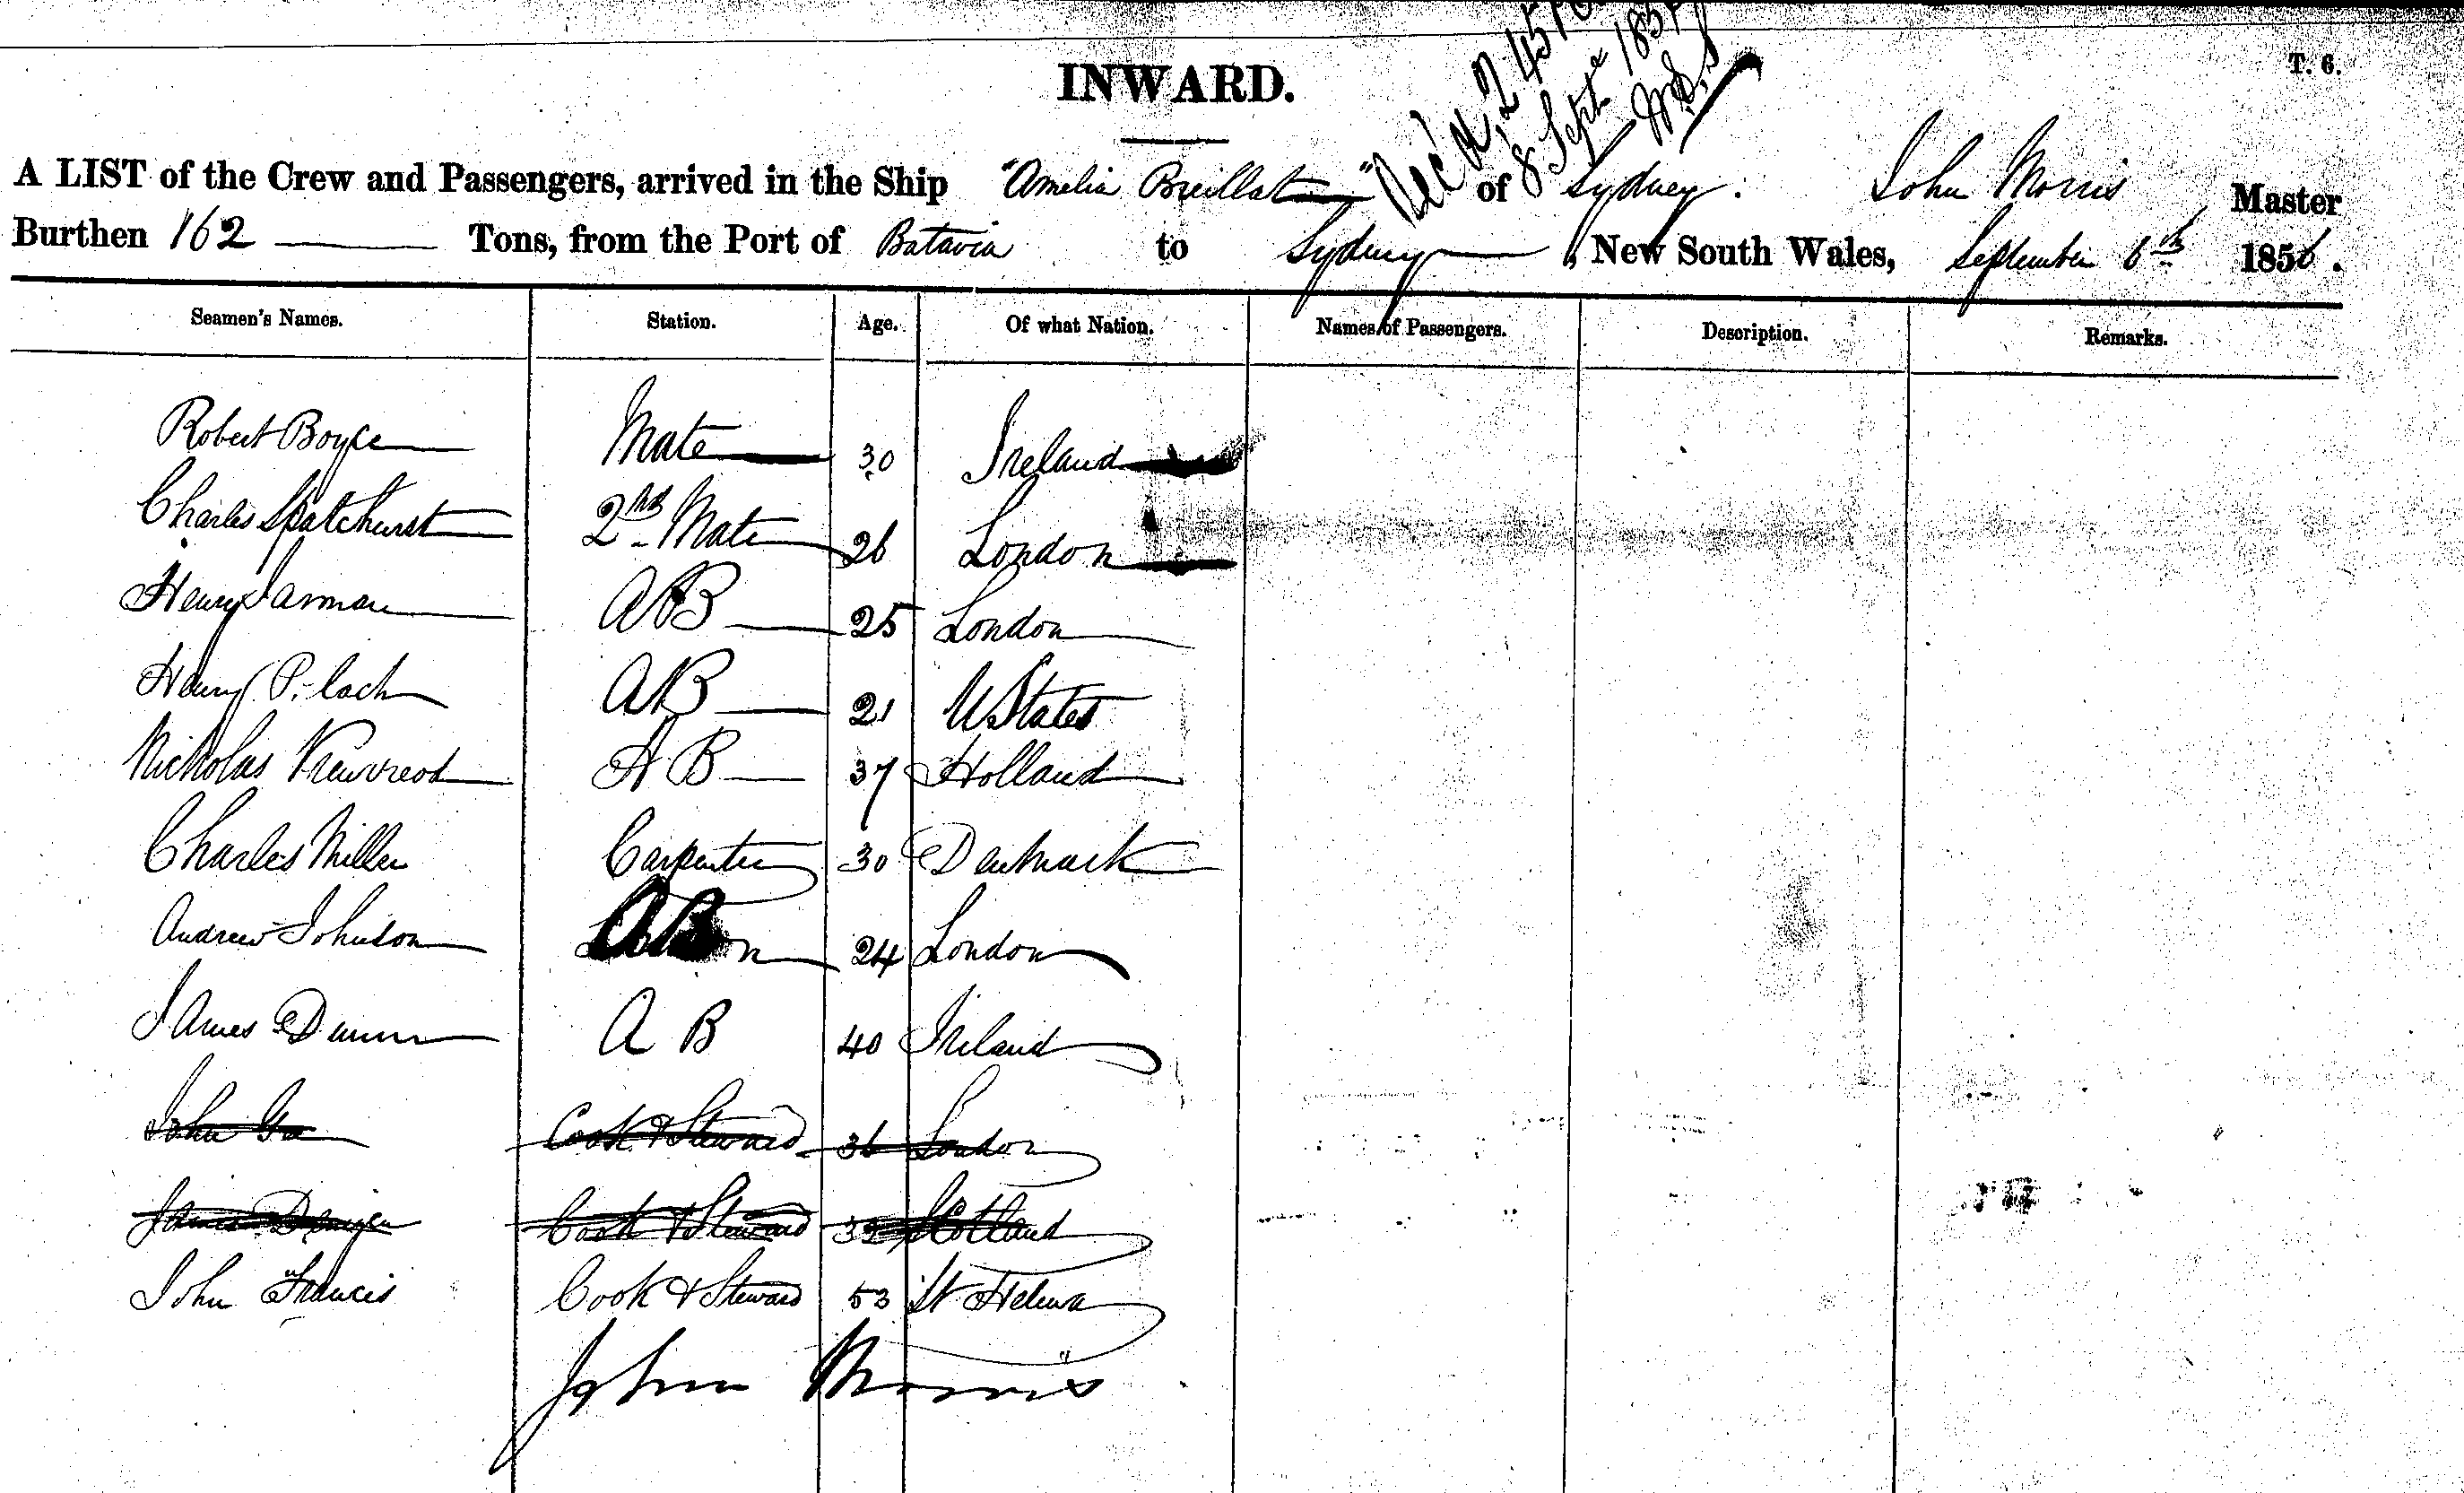 T. 6.
INWARD.
8 Septr 185
A LIST of the Crew and Passengers, arrived in the Ship "Amelia Breillat" of Sydney. John Morris Master
Burthen 162 Tons, from the Port of Batavia to Sydney, New South Wales, September 6th 1856.
Seamen's Names. Station. Age. Of what Nation. Names of Passengers. Description. Remarks.
Robert Boyce Mate 30 Ireland
Charles Spatchurst 2nd Mate 26 London
Henry Jarman AB 25 London
Henry AB 21 U States
Nicholas AB 37 Holland
Charles Miller Carpenter 30 Denmark
Andrew Johnson AB 24 London
James Dunn A B 40 Ireland
John Cook & Steward 36 London
James Cook & Steward Scotland
John Francis Cook & Steward 53 St Helena
John Morris